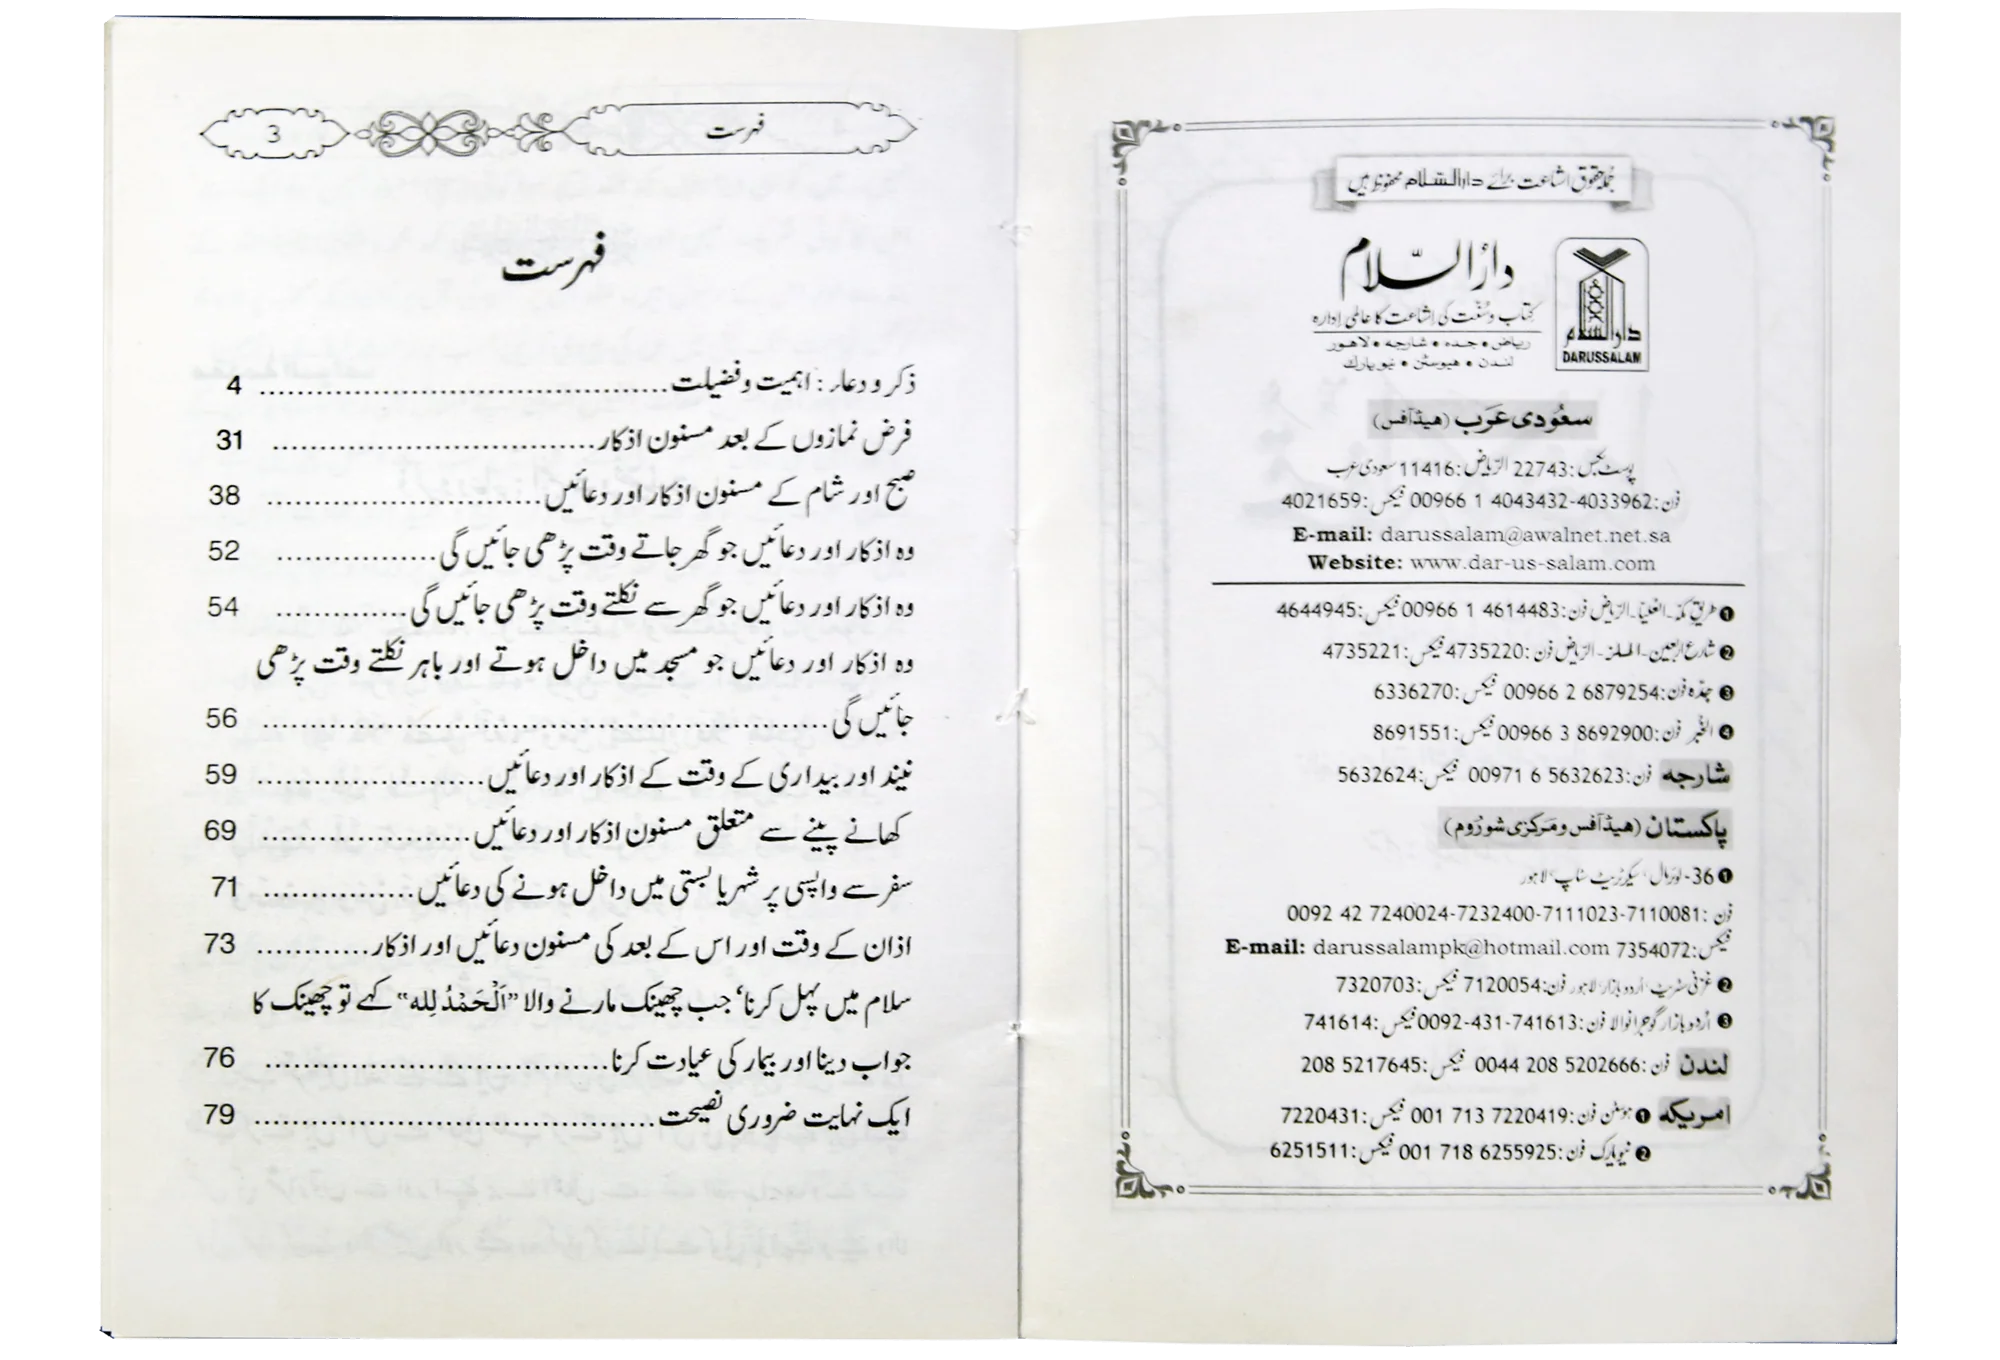 جملہ حقوق اشاعت برائے دارالسلام محفوظ ہیں
دارالسلام
کتاب و سنت کی اشاعت کا عالمی ادارہ
ریاض • جدہ • شارجہ • لاہور
لندن • ہیوسٹن • نیو یارک
دارالسلام
DARUSSALAM
سعودی عرب (ہیڈ آفس)
پوسٹ بکس: 22743 الریاض: 11416 سعودی عرب
فون: 00966 1 4043432-4033962 فیکس: 4021659
E-mail: darussalam@awalnet.net.sa
Website: www.dar-us-salam.com
❶ طریق مکہ۔ العلیا۔ الریاض فون: 00966 1 4614483 فیکس: 4644945
❷ شارع اربعین۔ الملز۔ الریاض فون: 4735220 فیکس: 4735221
❸ جدّہ فون: 00966 2 6879254 فیکس: 6336270
❹ الخبر فون: 00966 3 8692900 فیکس: 8691551
شارجہ فون: 00971 6 5632623 فیکس: 5632624
پاکستان (ہیڈ آفس و مرکزی شوروم)
❶ 36- لوئر مال، سیکرٹریٹ سٹاپ، لاہور
فون: 0092 42 7240024-7232400-7111023-7110081
فیکس: 7354072 E-mail: darussalampk@hotmail.com
❷ غزنی سٹریٹ، اردو بازار، لاہور فون: 7120054 فیکس: 7320703
❸ اردو بازار گوجرانوالا فون: 0092-431-741613 فیکس: 741614
لندن فون: 0044 208 5202666 فیکس: 208 5217645
امریکہ ❶ ہوسٹن فون: 001 713 7220419 فیکس: 7220431
❷ نیویارک فون: 001 718 6255925 فیکس: 6251511
فہرست 3
فہرست
ذکر و دعاء: اہمیت و فضیلت........................................ 4
فرض نمازوں کے بعد مسنون اذکار.................................. 31
صبح اور شام کے مسنون اذکار اور دعائیں............................ 38
وہ اذکار اور دعائیں جو گھر جاتے وقت پڑھی جائیں گی................ 52
وہ اذکار اور دعائیں جو گھر سے نکلتے وقت پڑھی جائیں گی............. 54
وہ اذکار اور دعائیں جو مسجد میں داخل ہوتے اور باہر نکلتے وقت پڑھی
جائیں گی........................................................ 56
نیند اور بیداری کے وقت کے اذکار اور دعائیں....................... 59
کھانے پینے سے متعلق مسنون اذکار اور دعائیں..................... 69
سفر سے واپسی پر شہر یا بستی میں داخل ہونے کی دعائیں............... 71
اذان کے وقت اور اس کے بعد کی مسنون دعائیں اور اذکار............ 73
سلام میں پہل کرنا، جب چھینک مارنے والا ”اَلْحَمْدُ لِلہ“ کہے تو چھینک کا
جواب دینا اور بیمار کی عیادت کرنا................................... 76
ایک نہایت ضروری نصیحت........................................ 79